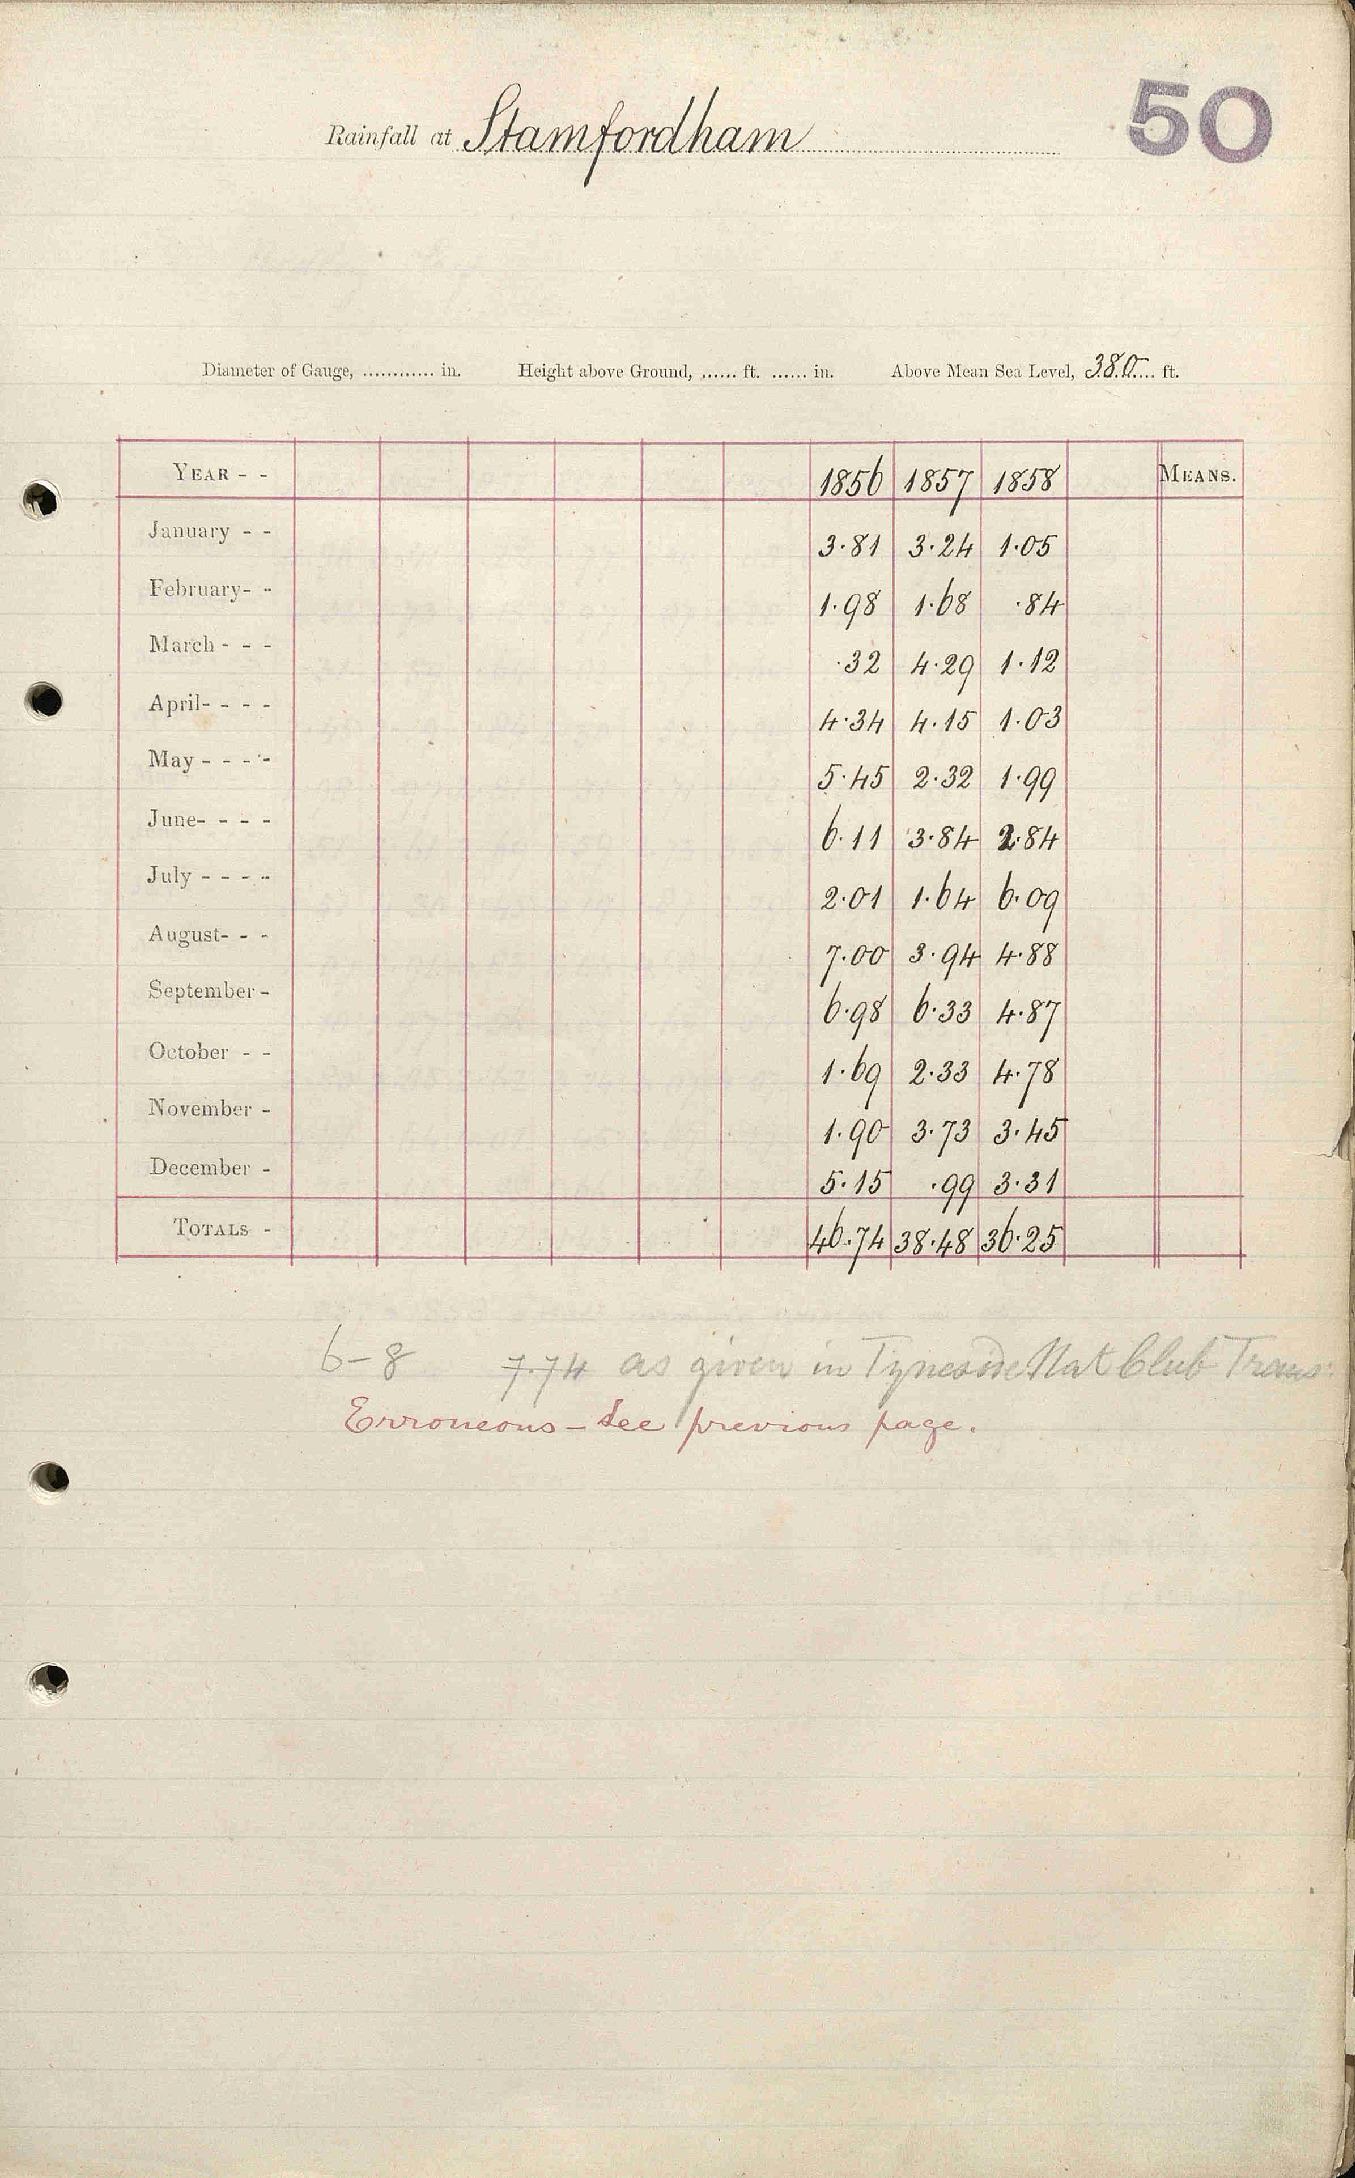 50
Rainfall at Stamfordham
Diameter of Gauge, ............ in. Height above Ground, ...... ft. ...... in. Above Mean Sea Level, 380 ft.
YEAR - - 1856 1857 1858 MEANS.
January - - 3.81 3.24 1.05
February- - 1.98 1.68 .84
March - - - .32 4.29 1.12
April- - - - 4.34 4.15 1.03
May - - - - 5.45 2.32 1.99
June- - - - 6.11 3.84 2.84
July - - - - 2.01 1.64 6.09
August- - - 7.00 3.94 4.88
September - 6.98 6.33 4.87
October - - 1.69 2.33 4.78
November - 1.90 3.73 3.45
December - 5.15 .99 3.31
TOTALS - 46.74 38.48 36.25
6-8 7.74 as given in Tyneside Nat Club Trans:
Erroneous - See previous page.